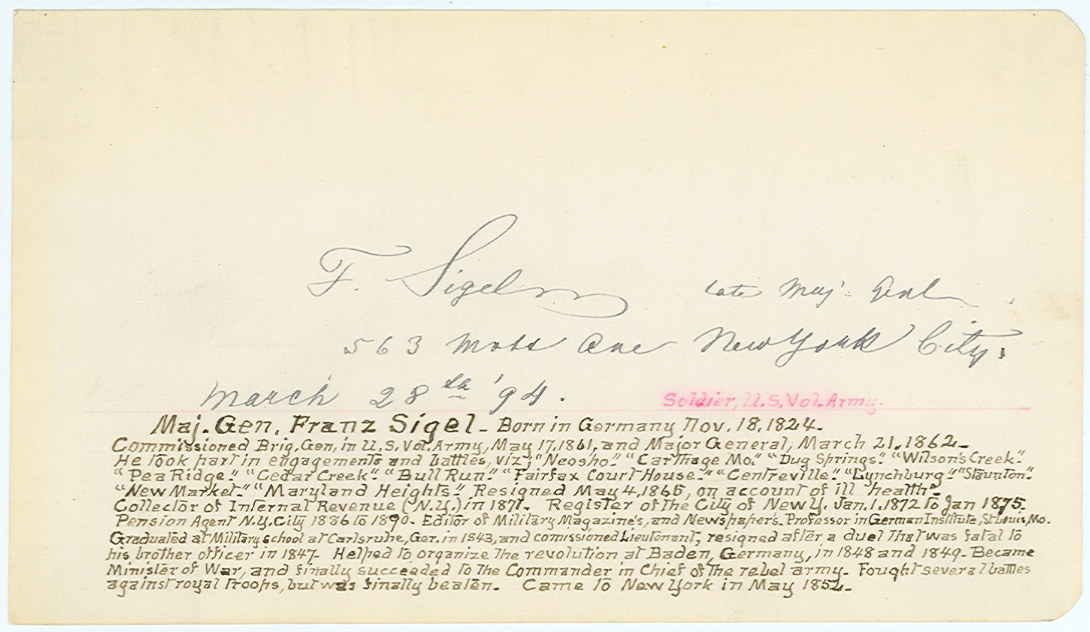 F. Sigel late Maj. Genl.
563 Mott Ave New York City.
March 28th '94.
Soldier, U.S. Vol. Army.
Maj. Gen. Franz Sigel - Born in Germany Nov. 18, 1824-
Commissioned Brig. Gen. in U.S. Vol. Army, May 17, 1861, and Major General, March 21, 1862-
He took part in engagements and battles, viz; "Neosho." "Carthage Mo." "Dug Springs." "Wilson's Creek."
"Pea Ridge." "Cedar Creek." "Bull Run." "Fairfax Court House." "Centreville." "Lynchburg." "Staunton."
"New Market." "Maryland Heights." Resigned May 4, 1865, on account of ill health-
Collector of Internal Revenue (N.Y.) in 1871. Register of the City of New Y. Jan. 1. 1872 to Jan 1875.
Pension Agent N.Y. City 1886 to 1890. Editor of Military Magazine's, and Newspaper's. Professor in German Institute, St Louis, Mo.
Graduated at Military School at Carlsruhe, Ger. in 1843, and comissioned Lieutenant, resigned after a duel that was fatal to
his brother officer in 1847. Helped to organize the revolution at Baden, Germany, in 1848 and 1849- Became
Minister of War, and finally succeeded to the Commander in Chief of the rebel army. Fought several battles
against royal troops, but was finally beaten. Came to New York in May 1852-